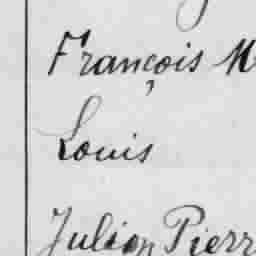 François M
Louis
Julien Pierr